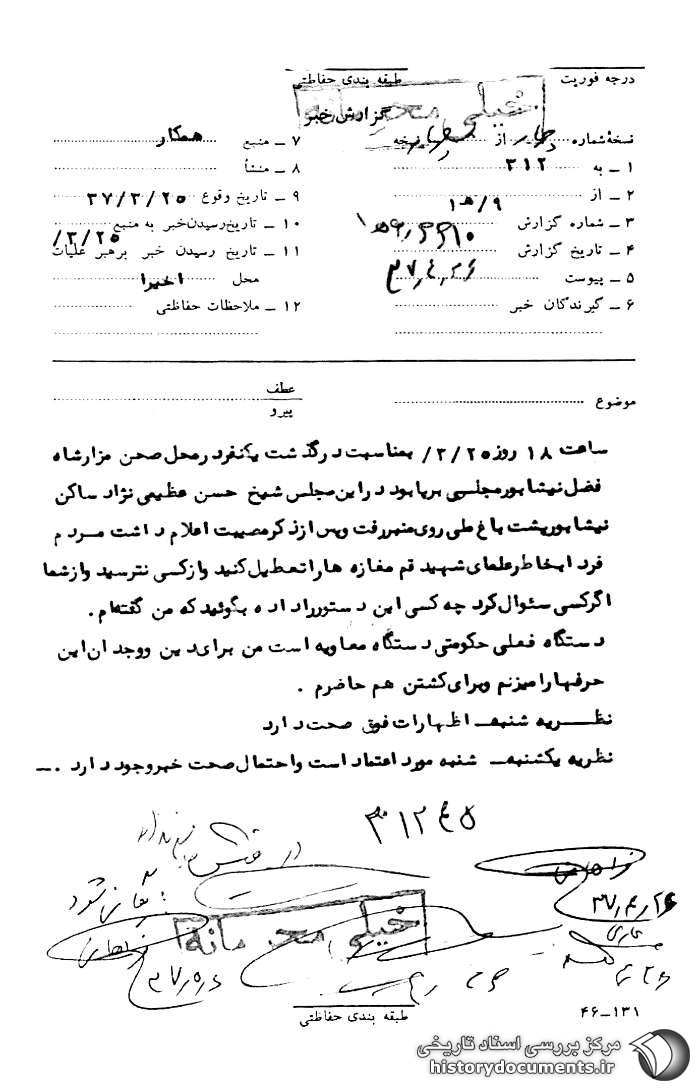 درجه فوریت
طبقه بندی حفاظتی
خیلی محرمانه
گزارش خبر
نسخهٔ شماره چهار از چهار نسخه
۱ – به ۳۱۲
۲ – از ۱۵/۹
۳ – شماره گزارش
۴ – تاریخ گزارش
۵ – پیوست
۶ – گیرندگان خبر
۷ – منبع همکار
۸ – منشأ
۹ – تاریخ وقوع ۳۷/۳/۲۵
۱۰ – تاریخ رسیدن خبر به منبع
۱۱ – تاریخ رسیدن خبر برهبر عملیات ۳/۲۵/
محل اخیرا
۱۲ – ملاحظات حفاظتی
موضوع
عطف
پیرو
ساعت ۱۸ روز ۳/۲۵/ بمناسبت درگذشت یکنفر در محل صحن مزار شاه
فضل نیشابور مجلسی برپا بود در این مجلس شیخ حسن عظیمی نژاد ساکن
نیشابور پشت باغ ملی روی منبر رفت و پس از ذکر مصیبت اعلام داشت مردم
فردا بخاطر علمای شهید قم مغازه ها را تعطیل کنید و از کسی نترسید و از شما
اگر کسی سئوال کرد چه کسی این دستور را داده بگوئید که من گفته‌ام .
دستگاه فعلی حکومتی دستگاه معاویه است من برای دین و وجدان این
حرفها را میزنم و برای کشتن هم حاضرم .
نظــریه شنبه– اظهارات فوق صحت دارد
نظریه یکشنبه– شنبه مورد اعتماد است و احتمال صحت خبر وجود دارد .–
۳۱۲۴۵
خیلی محرمانه
طبقه بندی حفاظتی
۴۶–۱۳۱
مرکز بررسی اسناد تاریخی
historydocuments.ir